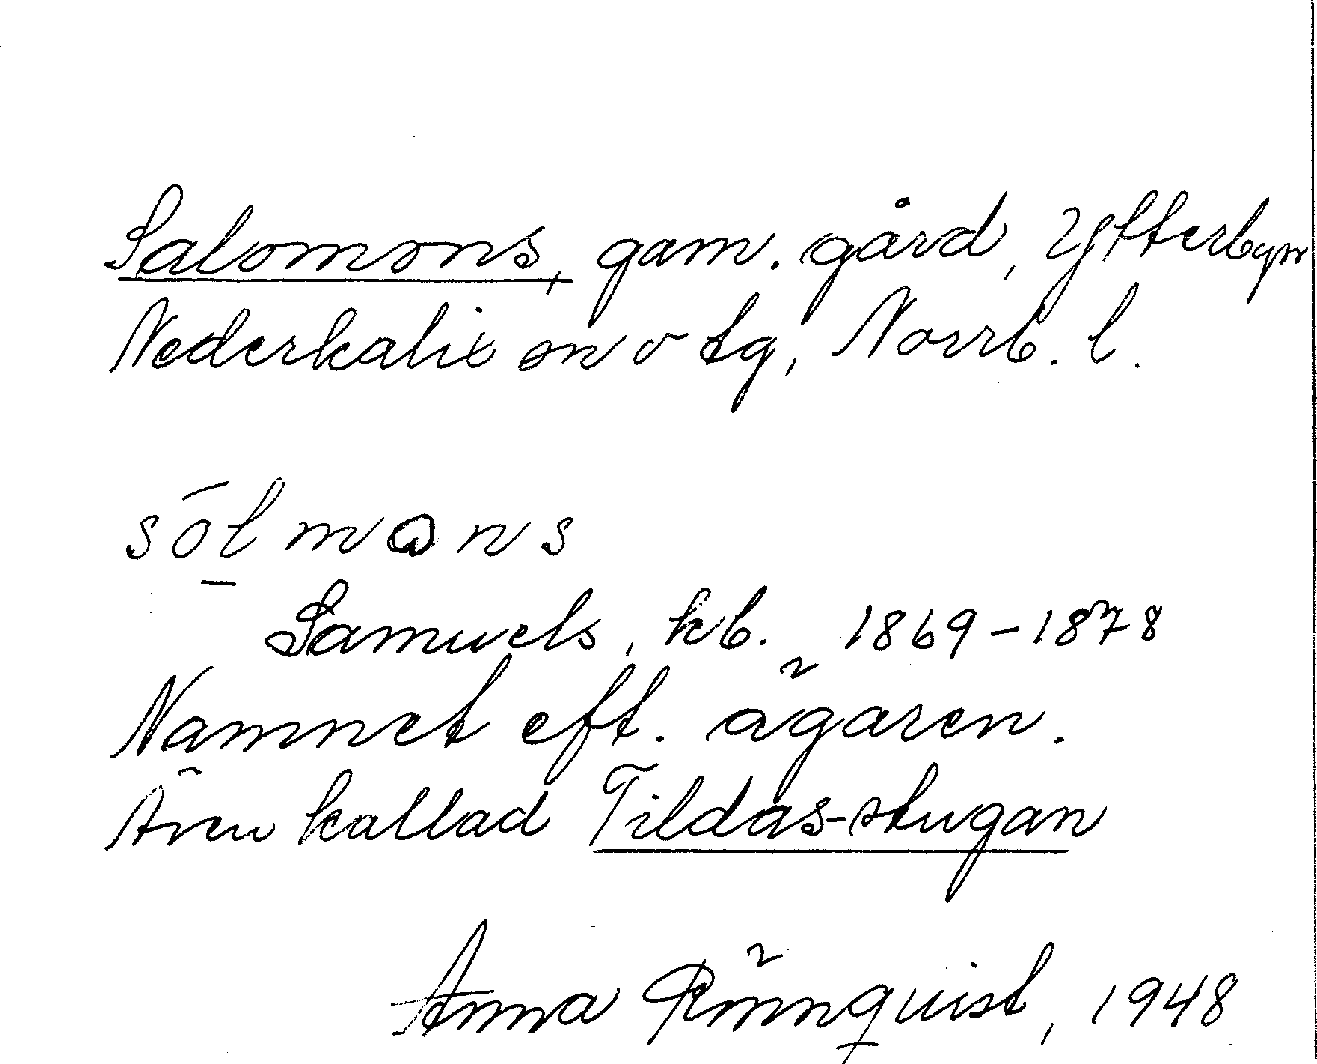 Salomons, gam. gård, Ytterbyn
Nederkalix sn o tg, Norrb. l.
sólmans
Samuels, kb. 1869-1878
Namnet eft. ägaren.
Även kallad Tildas-stugan
Anna Rönnquist, 1948